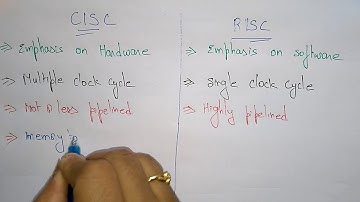 CISC
RISC
⇒ Emphasis on Hardware
⇒ Emphasis on software
⇒ Multiple clock cycle
⇒ Single clock cycle
⇒ Not o less pipelined
⇒ Highly pipelined
⇒ memory